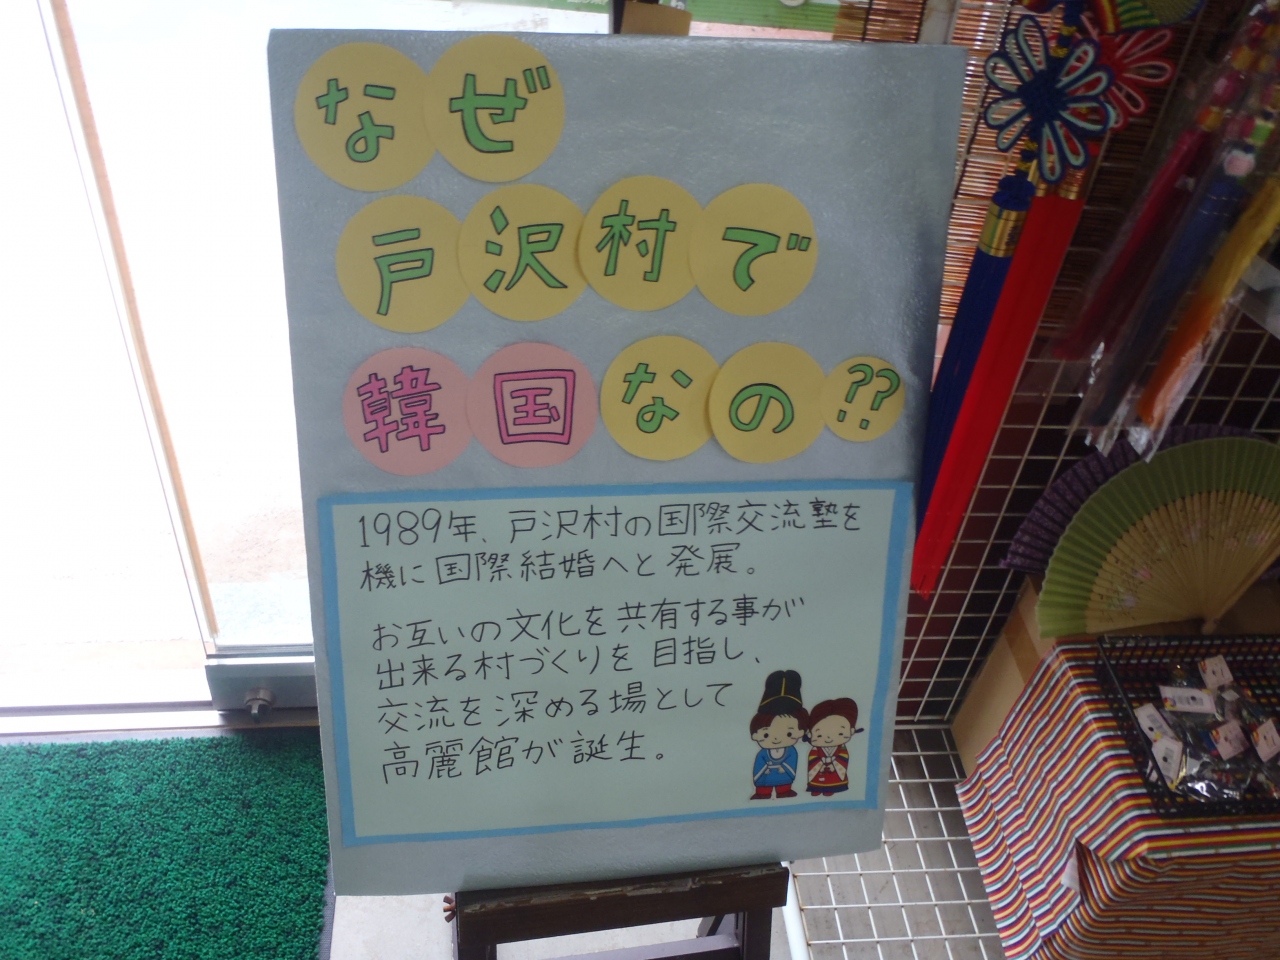 なぜ
戸沢村で
韓国なの??
1989年、戸沢村の国際交流塾を
機に国際結婚へと発展。
お互いの文化を共有する事が
出来る村づくりを目指し、
交流を深める場として
高麗館が誕生。